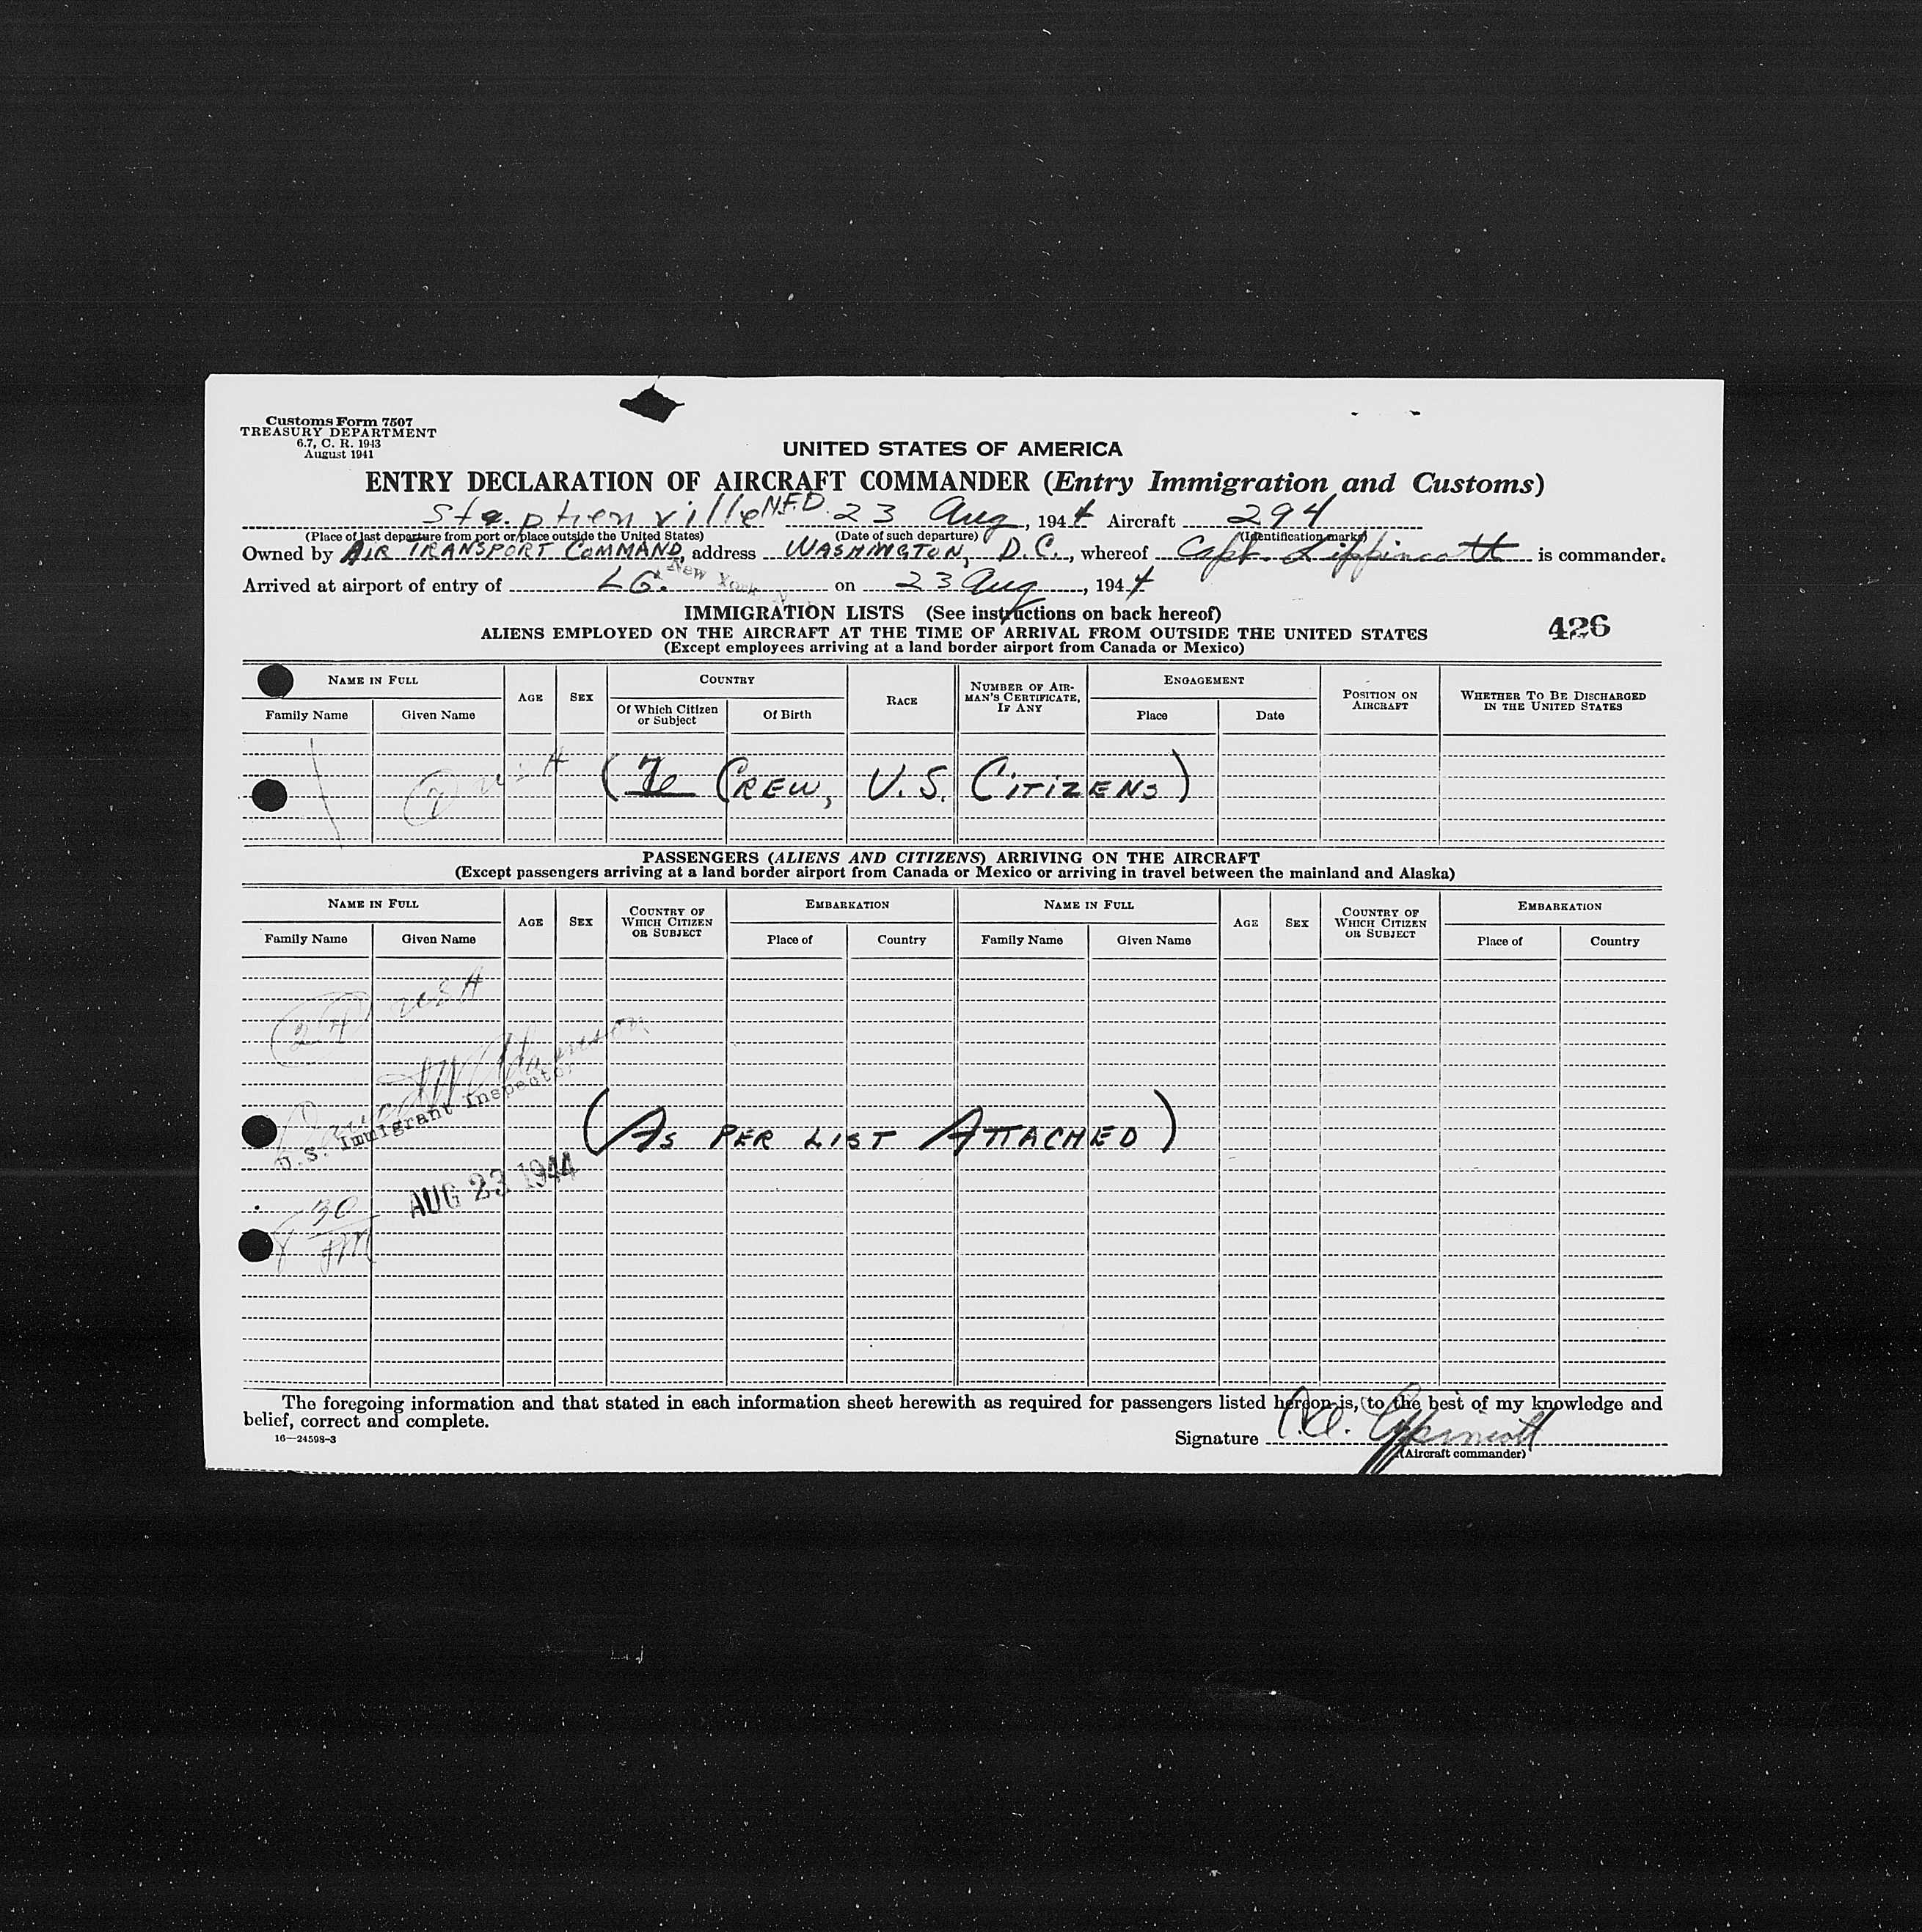 Customs Form 7507
TREASURY DEPARTMENT
6.7, C. R. 1943
August 1941
UNITED STATES OF AMERICA
ENTRY DECLARATION OF AIRCRAFT COMMANDER (Entry Immigration and Customs)
Stephenville N.F.D. 23 Aug, 1944 Aircraft 294
(Place of last departure from port or place outside the United States) (Date of such departure) (Identification marks)
Owned by AIR TRANSPORT COMMAND, address WASHINGTON, D.C., whereof Capt. Lippincott is commander.
Arrived at airport of entry of LG. New York on 23 Aug, 1944
IMMIGRATION LISTS (See instructions on back hereof)
426
ALIENS EMPLOYED ON THE AIRCRAFT AT THE TIME OF ARRIVAL FROM OUTSIDE THE UNITED STATES
(Except employees arriving at a land border airport from Canada or Mexico)
NAME IN FULL AGE SEX COUNTRY RACE NUMBER OF AIRMAN'S CERTIFICATE, IF ANY ENGAGEMENT POSITION ON AIRCRAFT WHETHER TO BE DISCHARGED IN THE UNITED STATES
Family Name Given Name Of Which Citizen or Subject Of Birth Place Date
(7 CREW, U.S. CITIZENS)
PASSENGERS (ALIENS AND CITIZENS) ARRIVING ON THE AIRCRAFT
(Except passengers arriving at a land border airport from Canada or Mexico or arriving in travel between the mainland and Alaska)
NAME IN FULL AGE SEX COUNTRY OF WHICH CITIZEN OR SUBJECT EMBARKATION NAME IN FULL AGE SEX COUNTRY OF WHICH CITIZEN OR SUBJECT EMBARKATION
Family Name Given Name Place of Country Family Name Given Name Place of Country
24 USA
U.S. Immigrant Inspector
(AS PER LIST ATTACHED)
AUG 23 1944
30 PM
The foregoing information and that stated in each information sheet herewith as required for passengers listed hereon is, to the best of my knowledge and
belief, correct and complete.
16—24598-3
Signature Lippincott
(Aircraft commander)